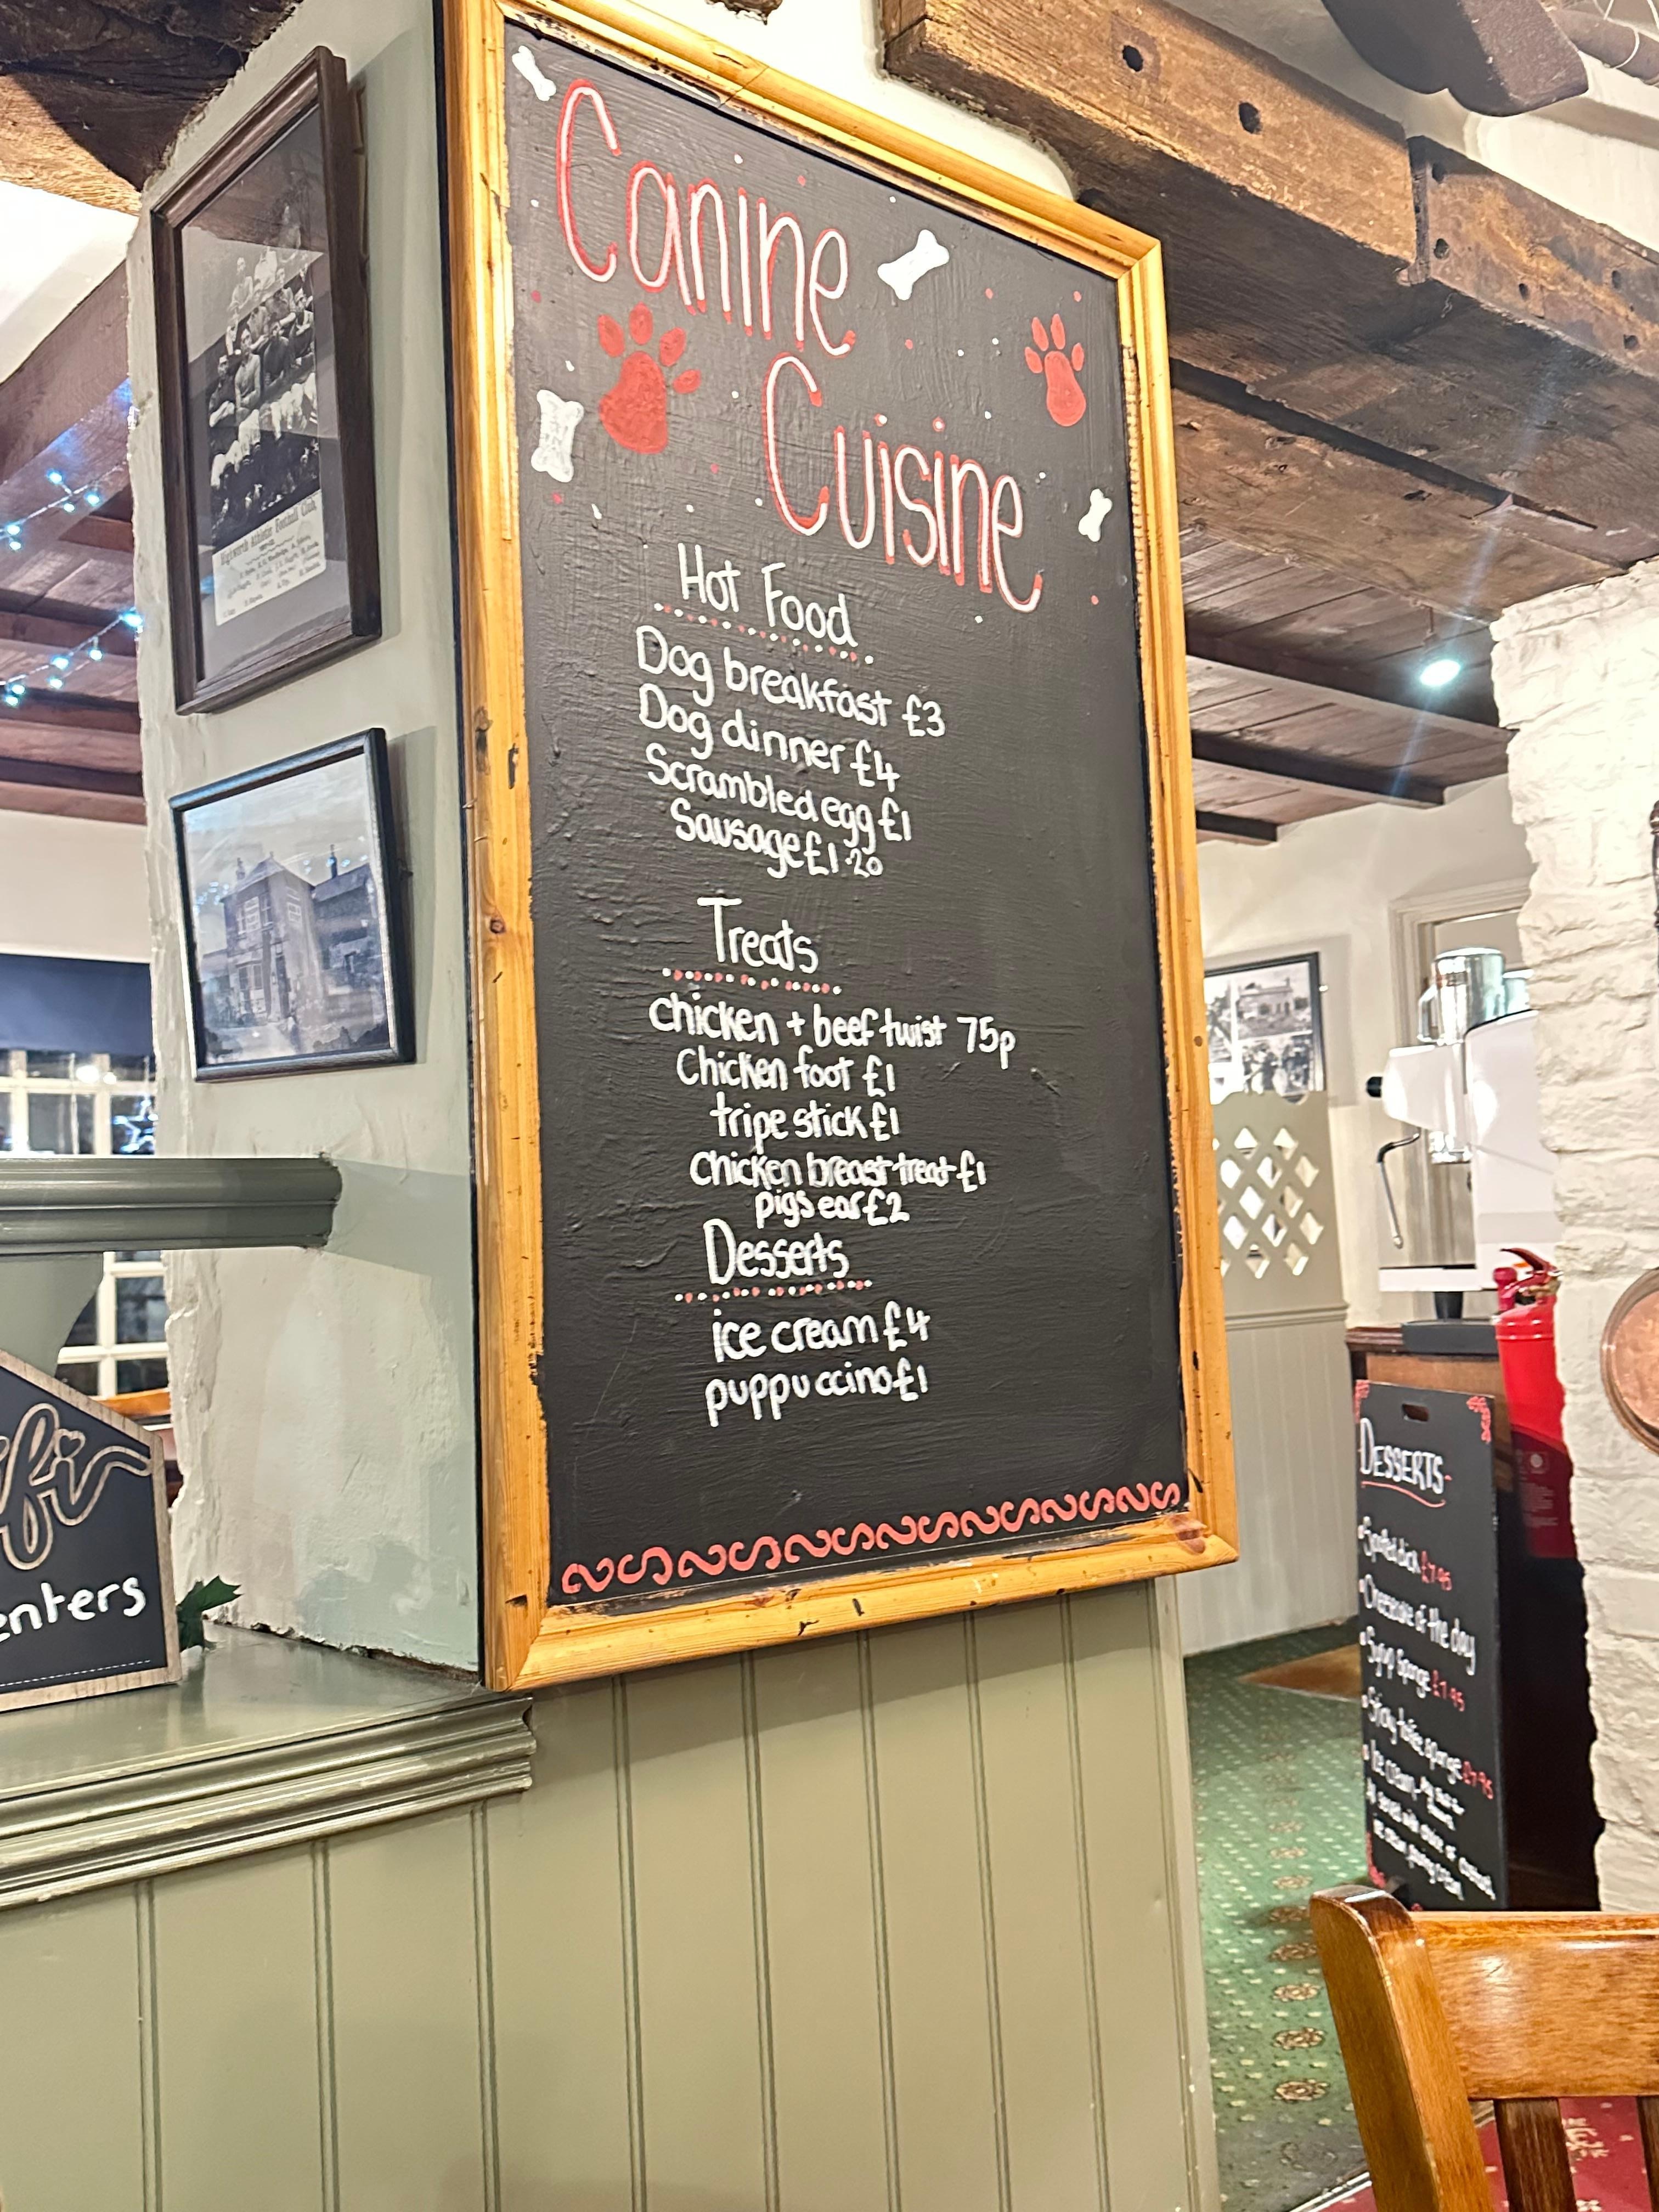 Canine
Cuisine
Hot Food
Dog breakfast £3
Dog dinner £4
Scrambled egg £1
Sausage £1.20
Treats
chicken + beef twist 75p
Chicken foot £1
tripe stick £1
chicken breast treat £1
pigs ear £2
Desserts
ice cream £4
puppuccino £1
Athletic Football Club
enters
DESSERTS
£7.95
of the day
Syrup Sponge £7.95
Sticky toffee sponge £7.95
Ice cream